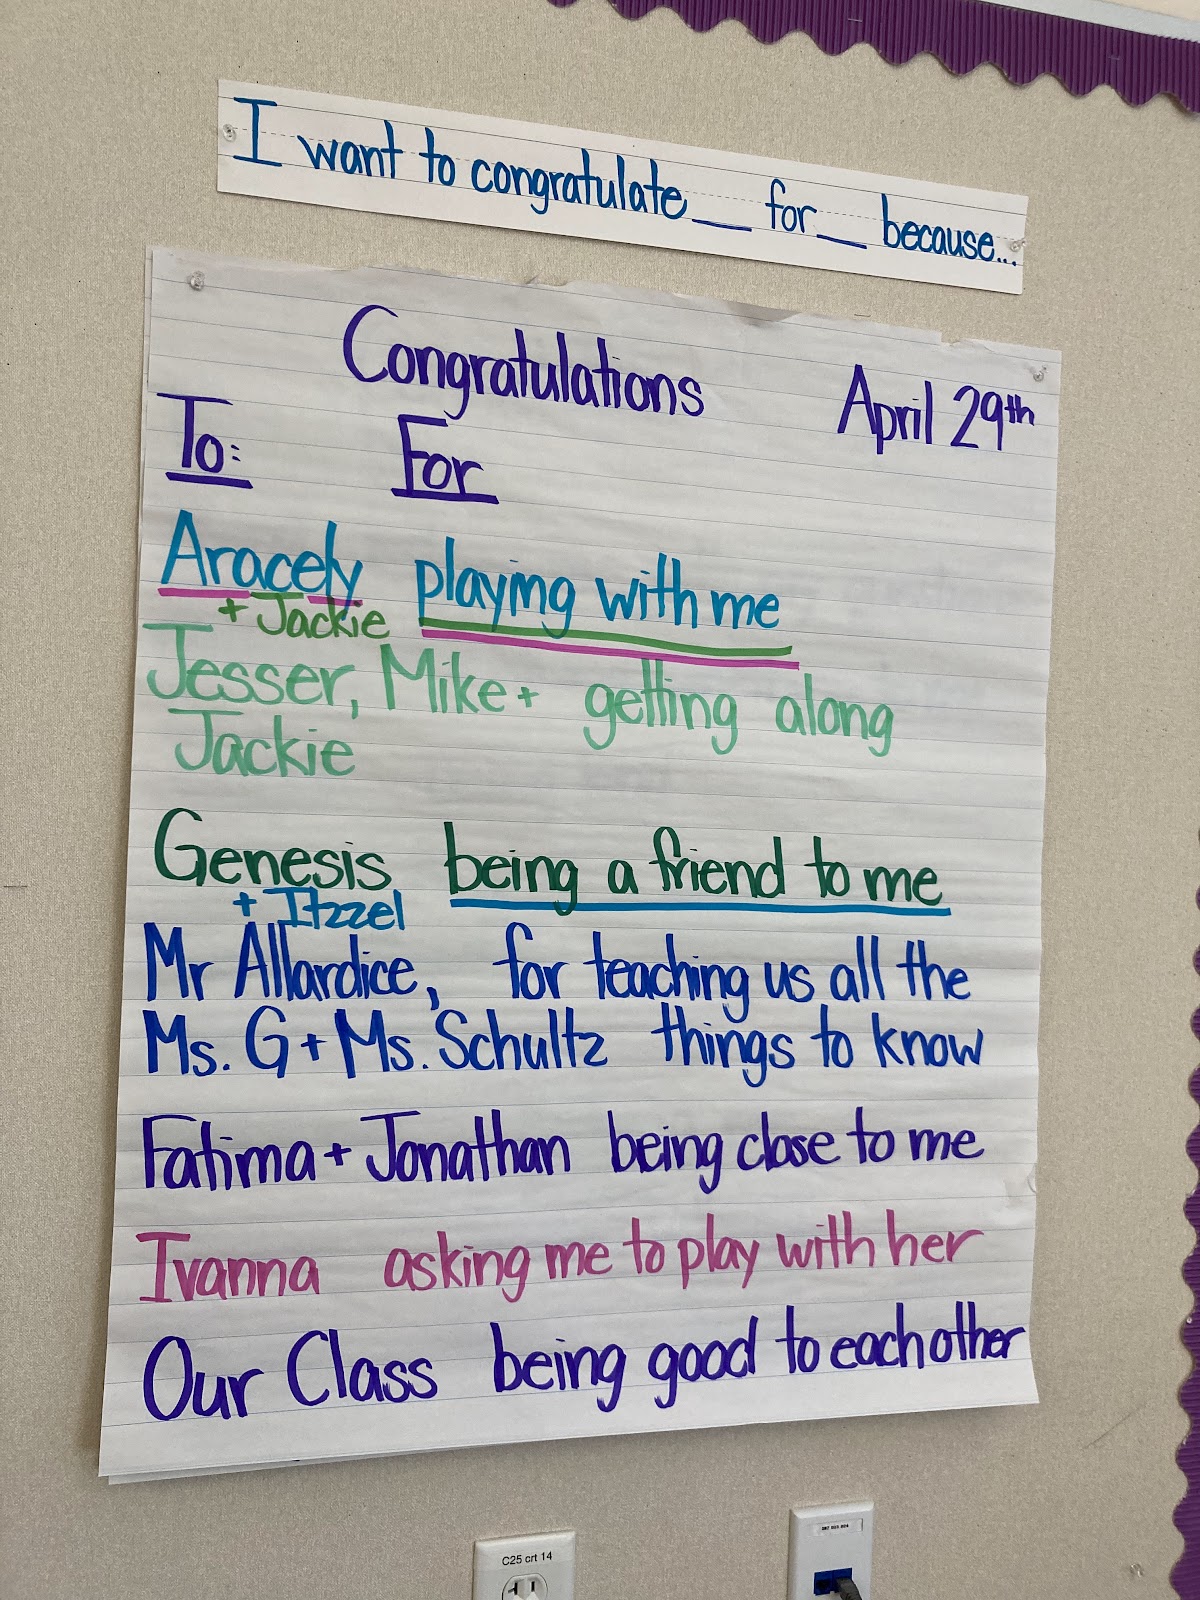 I want to congratulate __ for __ because...
Congratulations April 29th
To: For
Aracely playing with me
+ Jackie
Jesser, Mike + getting along
Jackie
Genesis being a friend to me
+ Itzzel
Mr Allardice, for teaching us all the
Ms. G + Ms. Schultz things to know
Fatima + Jonathan being close to me
Ivanna asking me to play with her
Our Class being good to each other
C25 crt 14